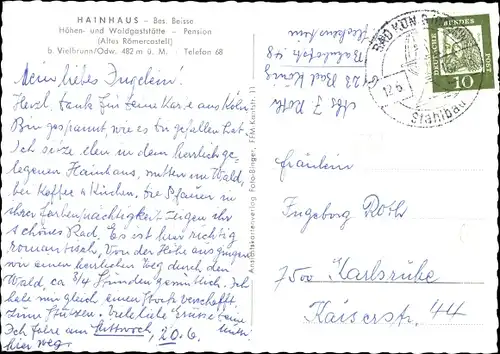 HAINHAUS – Bes. Beisse
Höhen- und Waldgaststätte - Pension
(Altes Römercastell)
b. Vielbrunn/Odw. 482 m ü. M. Telefon 68
Mein liebes Ingelein!
Herzl. Dank für Deine Karte aus Köln.
Bin gespannt, wie es Dir gefallen hat.
Ich sitze eben in dem herrlich ge-
legenen Hainhaus, mitten im Wald,
bei Kaffee u. Kuchen. Die Pfauen in
ihrer Farbenprächtigkeit zeigen ihr
schönes Rad. Es ist hier richtig
romantisch. Von der Höhe aus gingen
wir einen herrlichen Weg durch den
Wald, ca 3/4 Stunden gemütlich. Ich
habe mir gleich einen Stock verschafft,
zum Stützen. Viele liebe Grüsse Deine
Ich fahre am Mittwoch, 20.6. Mutti
hier weg.
Ansichtskartenverlag Foto-Binger, FFM, Kantstr. 11
Abs. J. Roth
6123 Bad König
Bahnhofstr. 48
BAD KÖNIG
12.6.
Stahlbad
DEUTSCHE BUNDESPOST
10
Fräulein
Ingeborg Roth
7500 Karlsruhe
Kaiserstr. 44